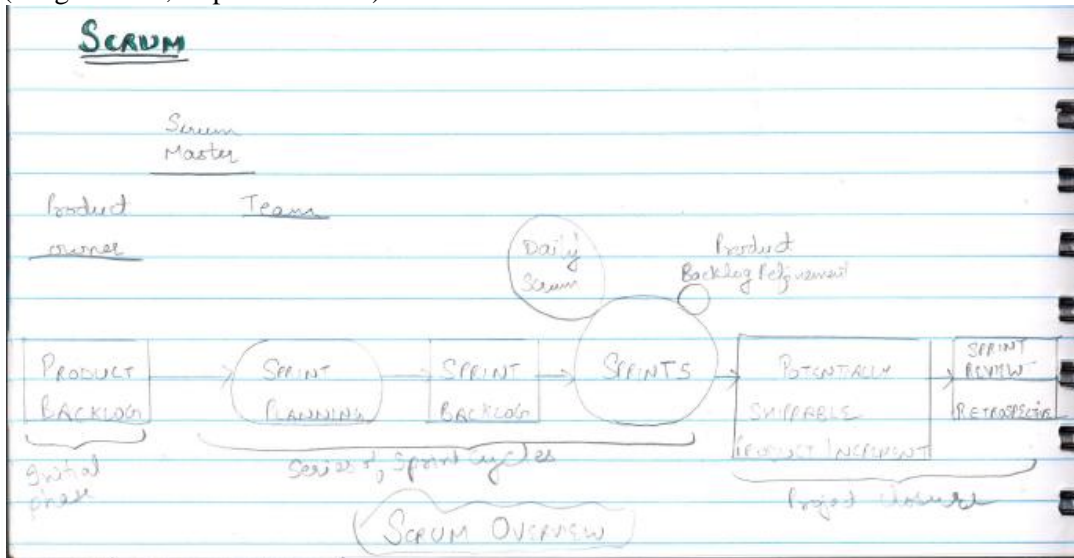 SCRUM
Scrum
Master
Product
owner
Team
Daily
Scrum
Product
Backlog Refinement
PRODUCT
BACKLOG
SPRINT
PLANNING
SPRINT
BACKLOG
SPRINTS
POTENTIALLY
SHIPPABLE
PRODUCT INCREMENT
SPRINT
REVIEW
RETROSPECTIVE
Initial
phase
Series of Sprint Cycles
Project closure
SCRUM OVERVIEW